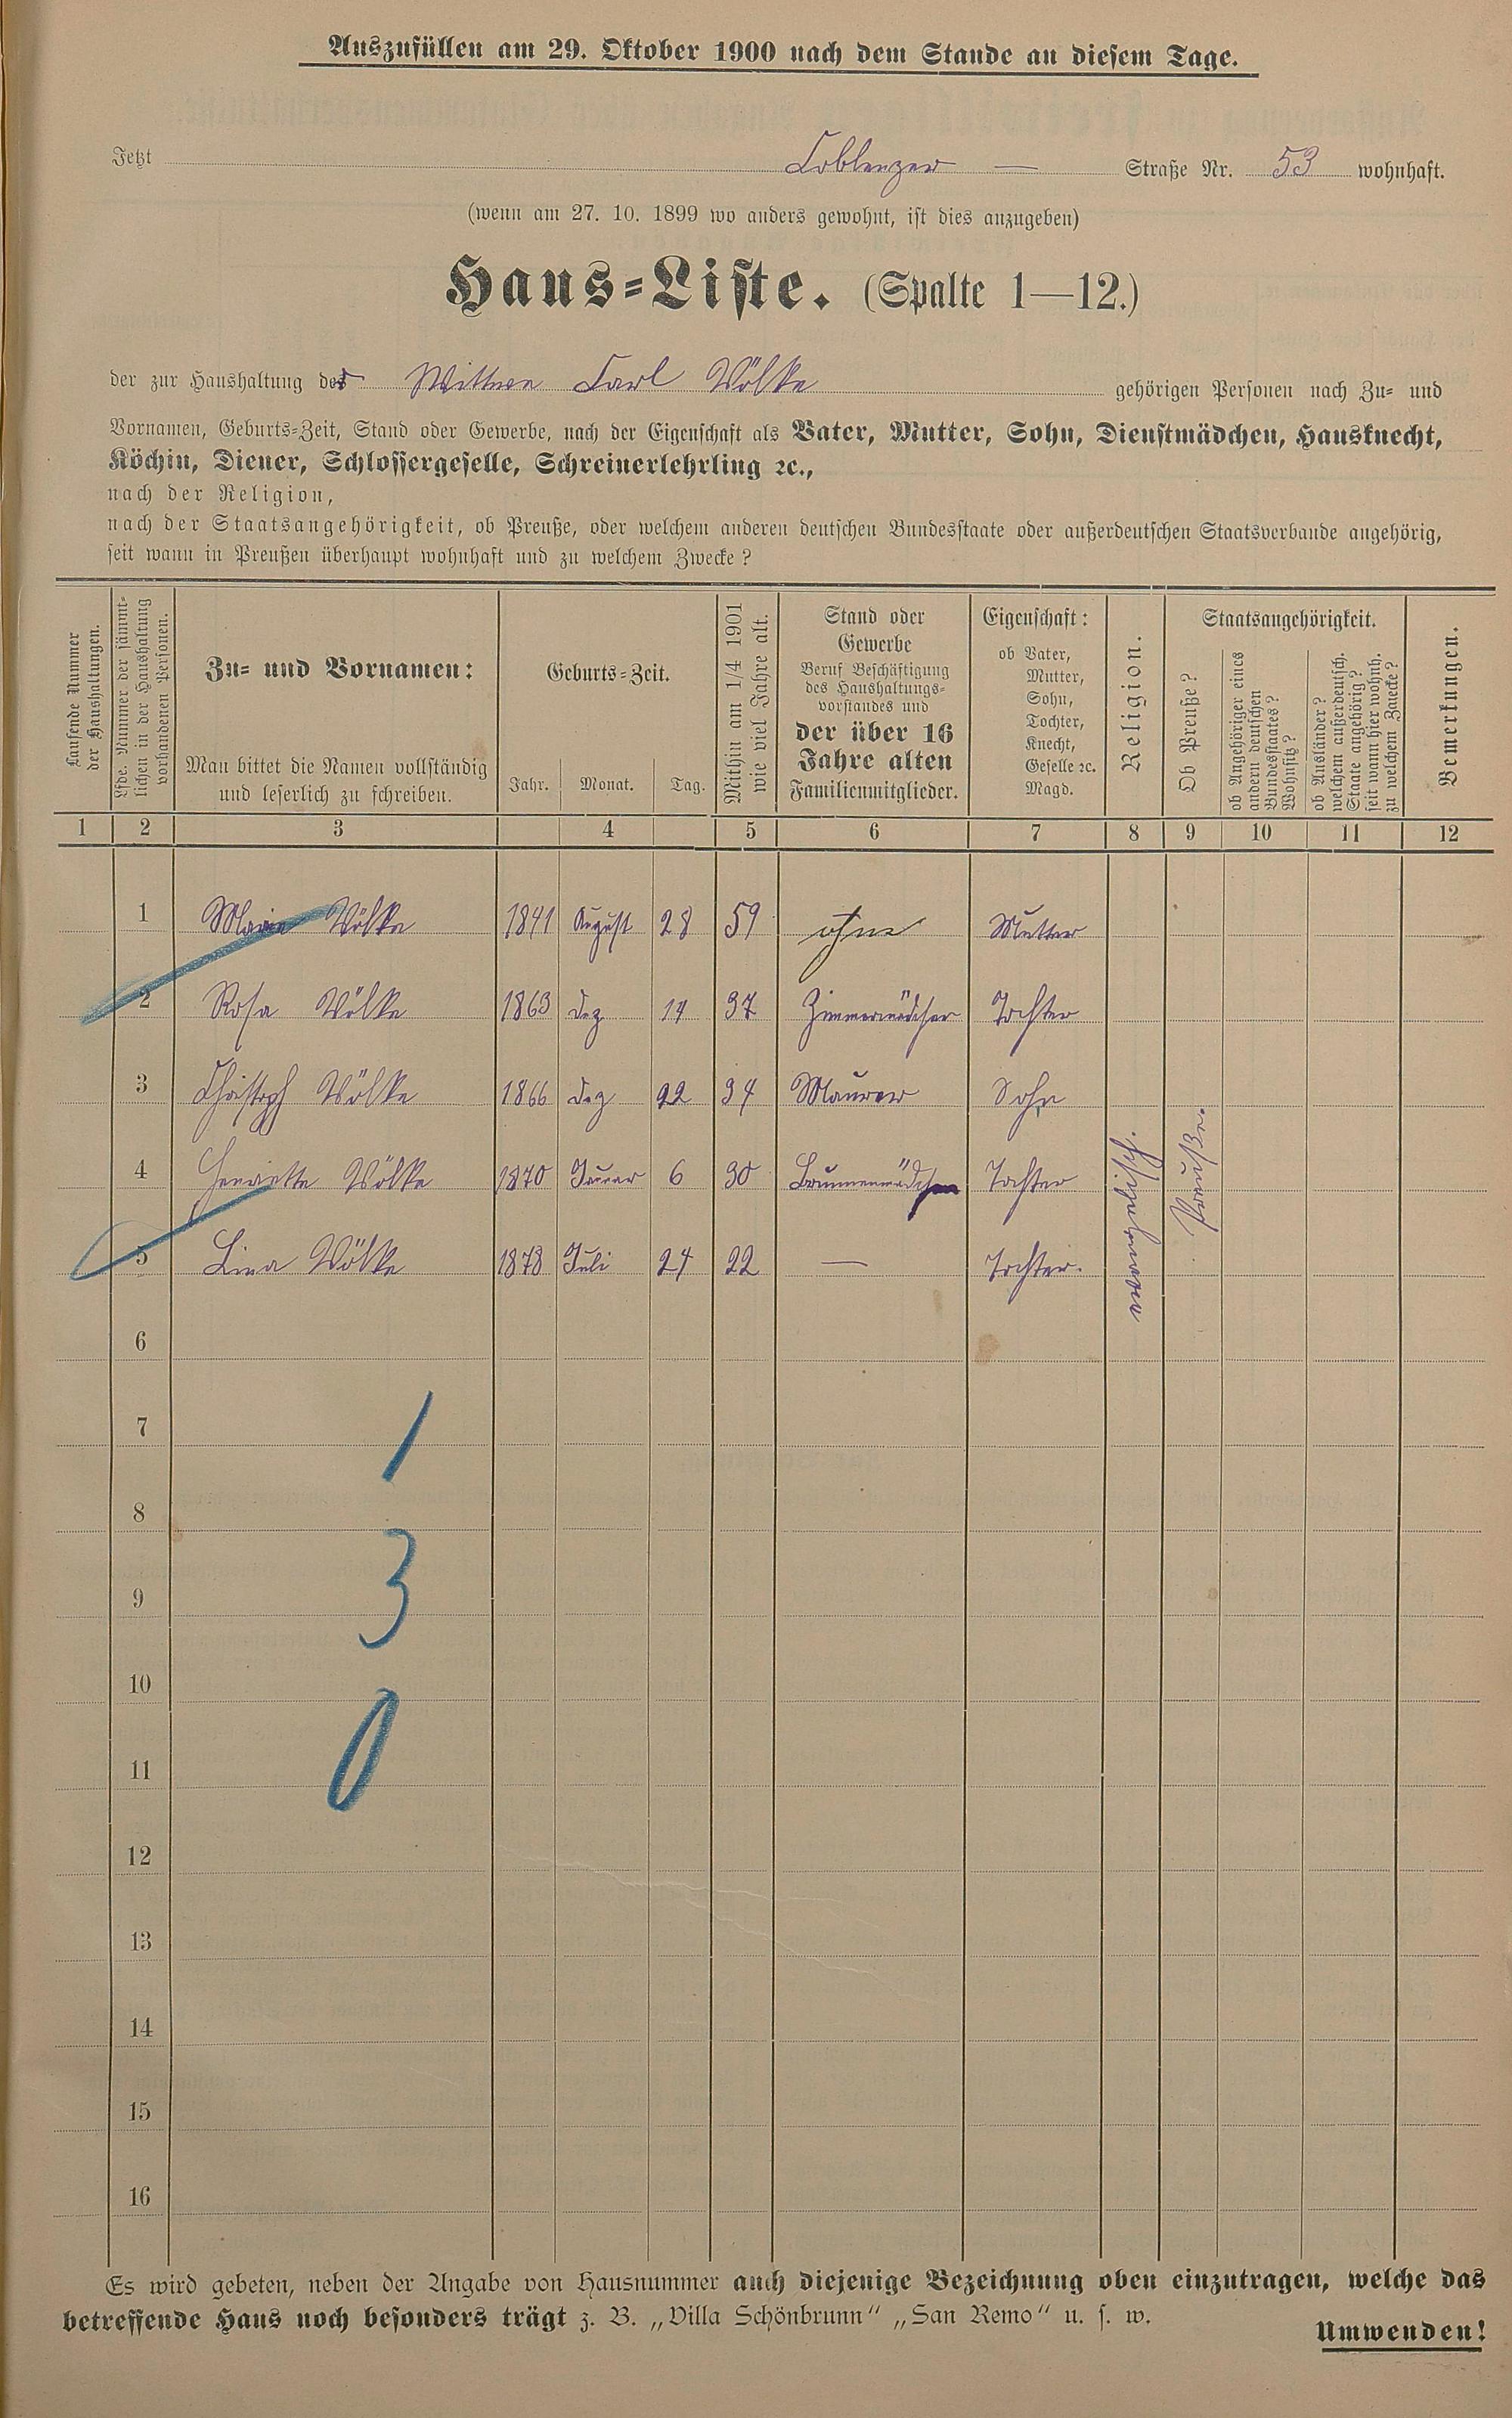 Auszufüllen am 29. Oktober 1900 nach dem Stande an diesem Tage.
Jetzt Coblenzer — Straße Nr. 53 wohnhaft.
(wenn am 27. 10. 1899 wo anders gewohnt, ist dies anzugeben)
Haus=Liste. (Spalte 1—12.)
der zur Haushaltung der Wittwe Carl Wölke gehörigen Personen nach Zu= und
Vornamen, Geburts=Zeit, Stand oder Gewerbe, nach der Eigenschaft als Vater, Mutter, Sohn, Dienstmädchen, Hausknecht,
Köchin, Diener, Schlossergeselle, Schreinerlehrling ꝛc.,
nach der Religion,
nach der Staatsangehörigkeit, ob Preuße, oder welchem anderen deutschen Bundesstaate oder außerdeutschen Staatsverbande angehörig,
seit wann in Preußen überhaupt wohnhaft und zu welchem Zwecke?
Laufende Nummer
der Haushaltungen.
Lfde. Nummer der sämmt=
lichen in der Haushaltung
vorhandenen Personen.
Zu= und Vornamen:
Man bittet die Namen vollständig
und leserlich zu schreiben.
Geburts=Zeit.
Jahr. Monat. Tag.
Mithin am 1/4 1901
wie viel Jahre alt.
Stand oder
Gewerbe
Beruf Beschäftigung
des Haushaltungs=
vorstandes und
der über 16
Jahre alten
Familienmitglieder.
Eigenschaft:
ob Vater,
Mutter,
Sohn,
Tochter,
Knecht,
Geselle ꝛc.
Magd.
Religion.
Staatsangehörigkeit.
Ob Preuße?
ob Angehöriger eines
andern deutschen
Bundesstaates?
Wohnsitz?
ob Ausländer?
welchem außerdeutsch.
Staate angehörig?
seit wann hier wohnh.
zu welchem Zwecke?
Bemerkungen.
1 2 3 4 5 6 7 8 9 10 11 12
1 Maria Wölke 1841 August 28 59 ohne Mutter
2 Rosa Wölke 1863 Dez 14 37 Zimmermädchen Tochter
3 Christoph Wölke 1866 Dez 22 34 Maurer Sohn
4 Henriette Wölke 1870 Januar 6 30 Brunnenmädchen Tochter
5 Lina Wölke 1878 Juli 24 22 — Tochter.
evangelisch.
Preuße.
6
7
1
8
3
9
10
0
11
12
13
14
15
16
Es wird gebeten, neben der Angabe von Hausnummer auch diejenige Bezeichnung oben einzutragen, welche das
betreffende Haus noch besonders trägt z. B. „Villa Schönbrunn“ „San Remo“ u. s. w.
Umwenden!